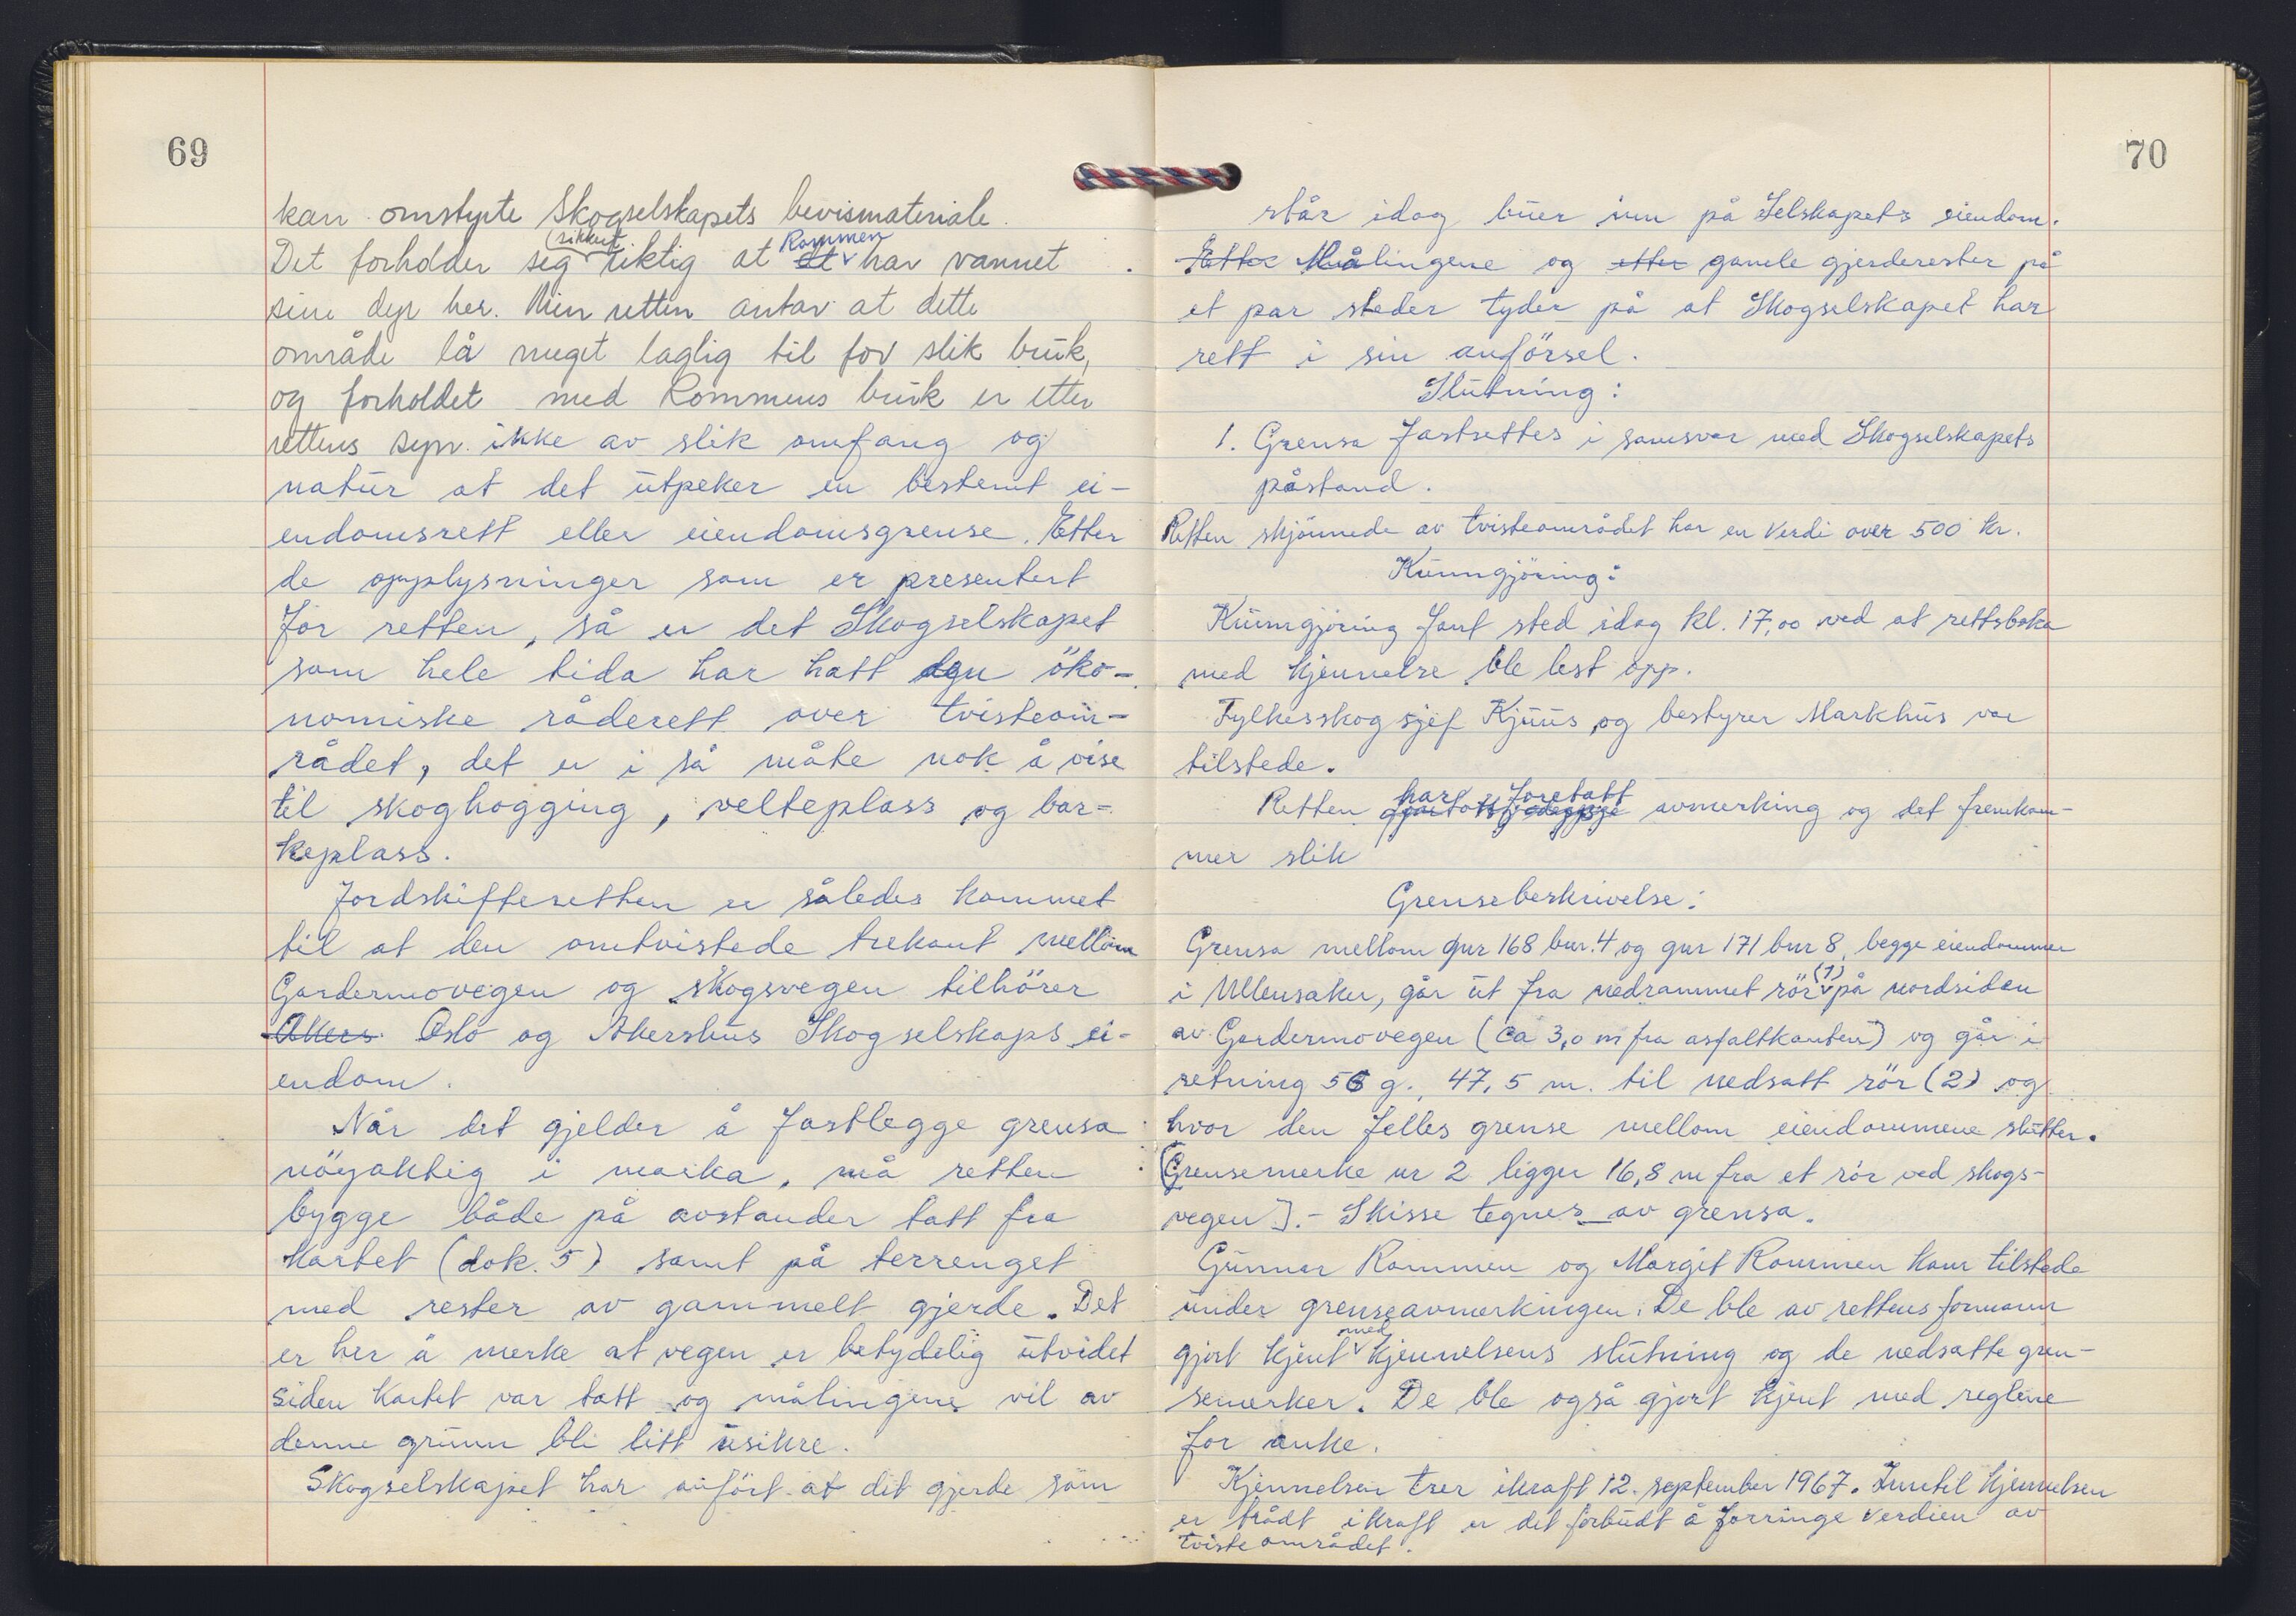 69
kan omstyrte Skogselskapets bevismateriale.
Det forholder seg (sikkert) riktig at Rommen har vannet
sine dyr her. Men retten antar at dette
område lå meget laglig til for slik bruk,
og forholdet med Rommens bruk er etter
rettens syn ikke av slik omfang og
natur at det utpeker en bestemt ei-
endomsrett eller eiendomsgrense. Etter
de opplysninger som er presentert
for retten, så er det Skogselskapet
som hele tida har hatt den öko-
nomiske råderett over tvisteom-
rådet, det er i så måte nok å vise
til skoghogging, velteplass og bar-
keplass.
Jordskifteretten er således kommet
til at den omtvistede trekant mellom
Gardermovegen og skogsvegen tilhörer
Akers Oslo og Akershus Skogselskaps ei-
endom.
Når det gjelder å fastlegge grensa
nöyaktig i marka, må retten
bygge både på avstander tatt fra
kartet (dok. 5) samt på terrenget
med rester av gammelt gjerde. Det
er her å merke at vegen er betydelig utvidet
siden kartet var tatt og målingene vil av
denne grunn bli litt usikre.
Skogselskapet har anfört at det gjerde som
70
står idag buer inn på Selskapets eiendom.
Etter Målingene og etter gamle gjerderester på
et par steder tyder på at Skogselskapet har
rett i sin anförsel.
Slutning:
1. Grensa fastsettes i samsvar med Skogselskapets
påstand.
Retten skjönnede av tvisteområdet har en verdi over 500 kr.
Kunngjöring:
Kunngjöring fant sted idag kl. 17,00 ved at rettsboka
med kjennelse ble lest opp.
Fylkesskogsjef Kjuus og bestyrer Markhus var
tilstede.
Retten har foretatt avmerking og det fremkom-
mer slik
Grensebeskrivelse:
Grensa mellom gnr 168 bnr. 4 og gnr 171 bnr 8, begge eiendommer
i Ullensaker, går ut fra nedrammet rör (1) på nordsiden
av Gardermovegen (ca 3,0 m fra asfaltkanten) og går i
retning 56 g., 47,5 m. til nedsatt rör (2) og
hvor den felles grense mellom eiendommene slutter.
(Grensemerke nr 2 ligger 16,8 m fra et rör ved skogs-
vegen]. - Skisse tegnes av grensa.
Gunnar Rommen og Margit Rommen kom tilstede
under grenseavmerkingen. De ble av rettens formann
gjort kjent med kjennelsens slutning og de nedsatte gren-
semerker. De ble også gjort kjent med reglene
for anke.
Kjennelsen trer ikraft 12. september 1967. Inntil kjennelsen
er trådt ikraft er det forbudt å forringe verdien av
tvisteområdet.